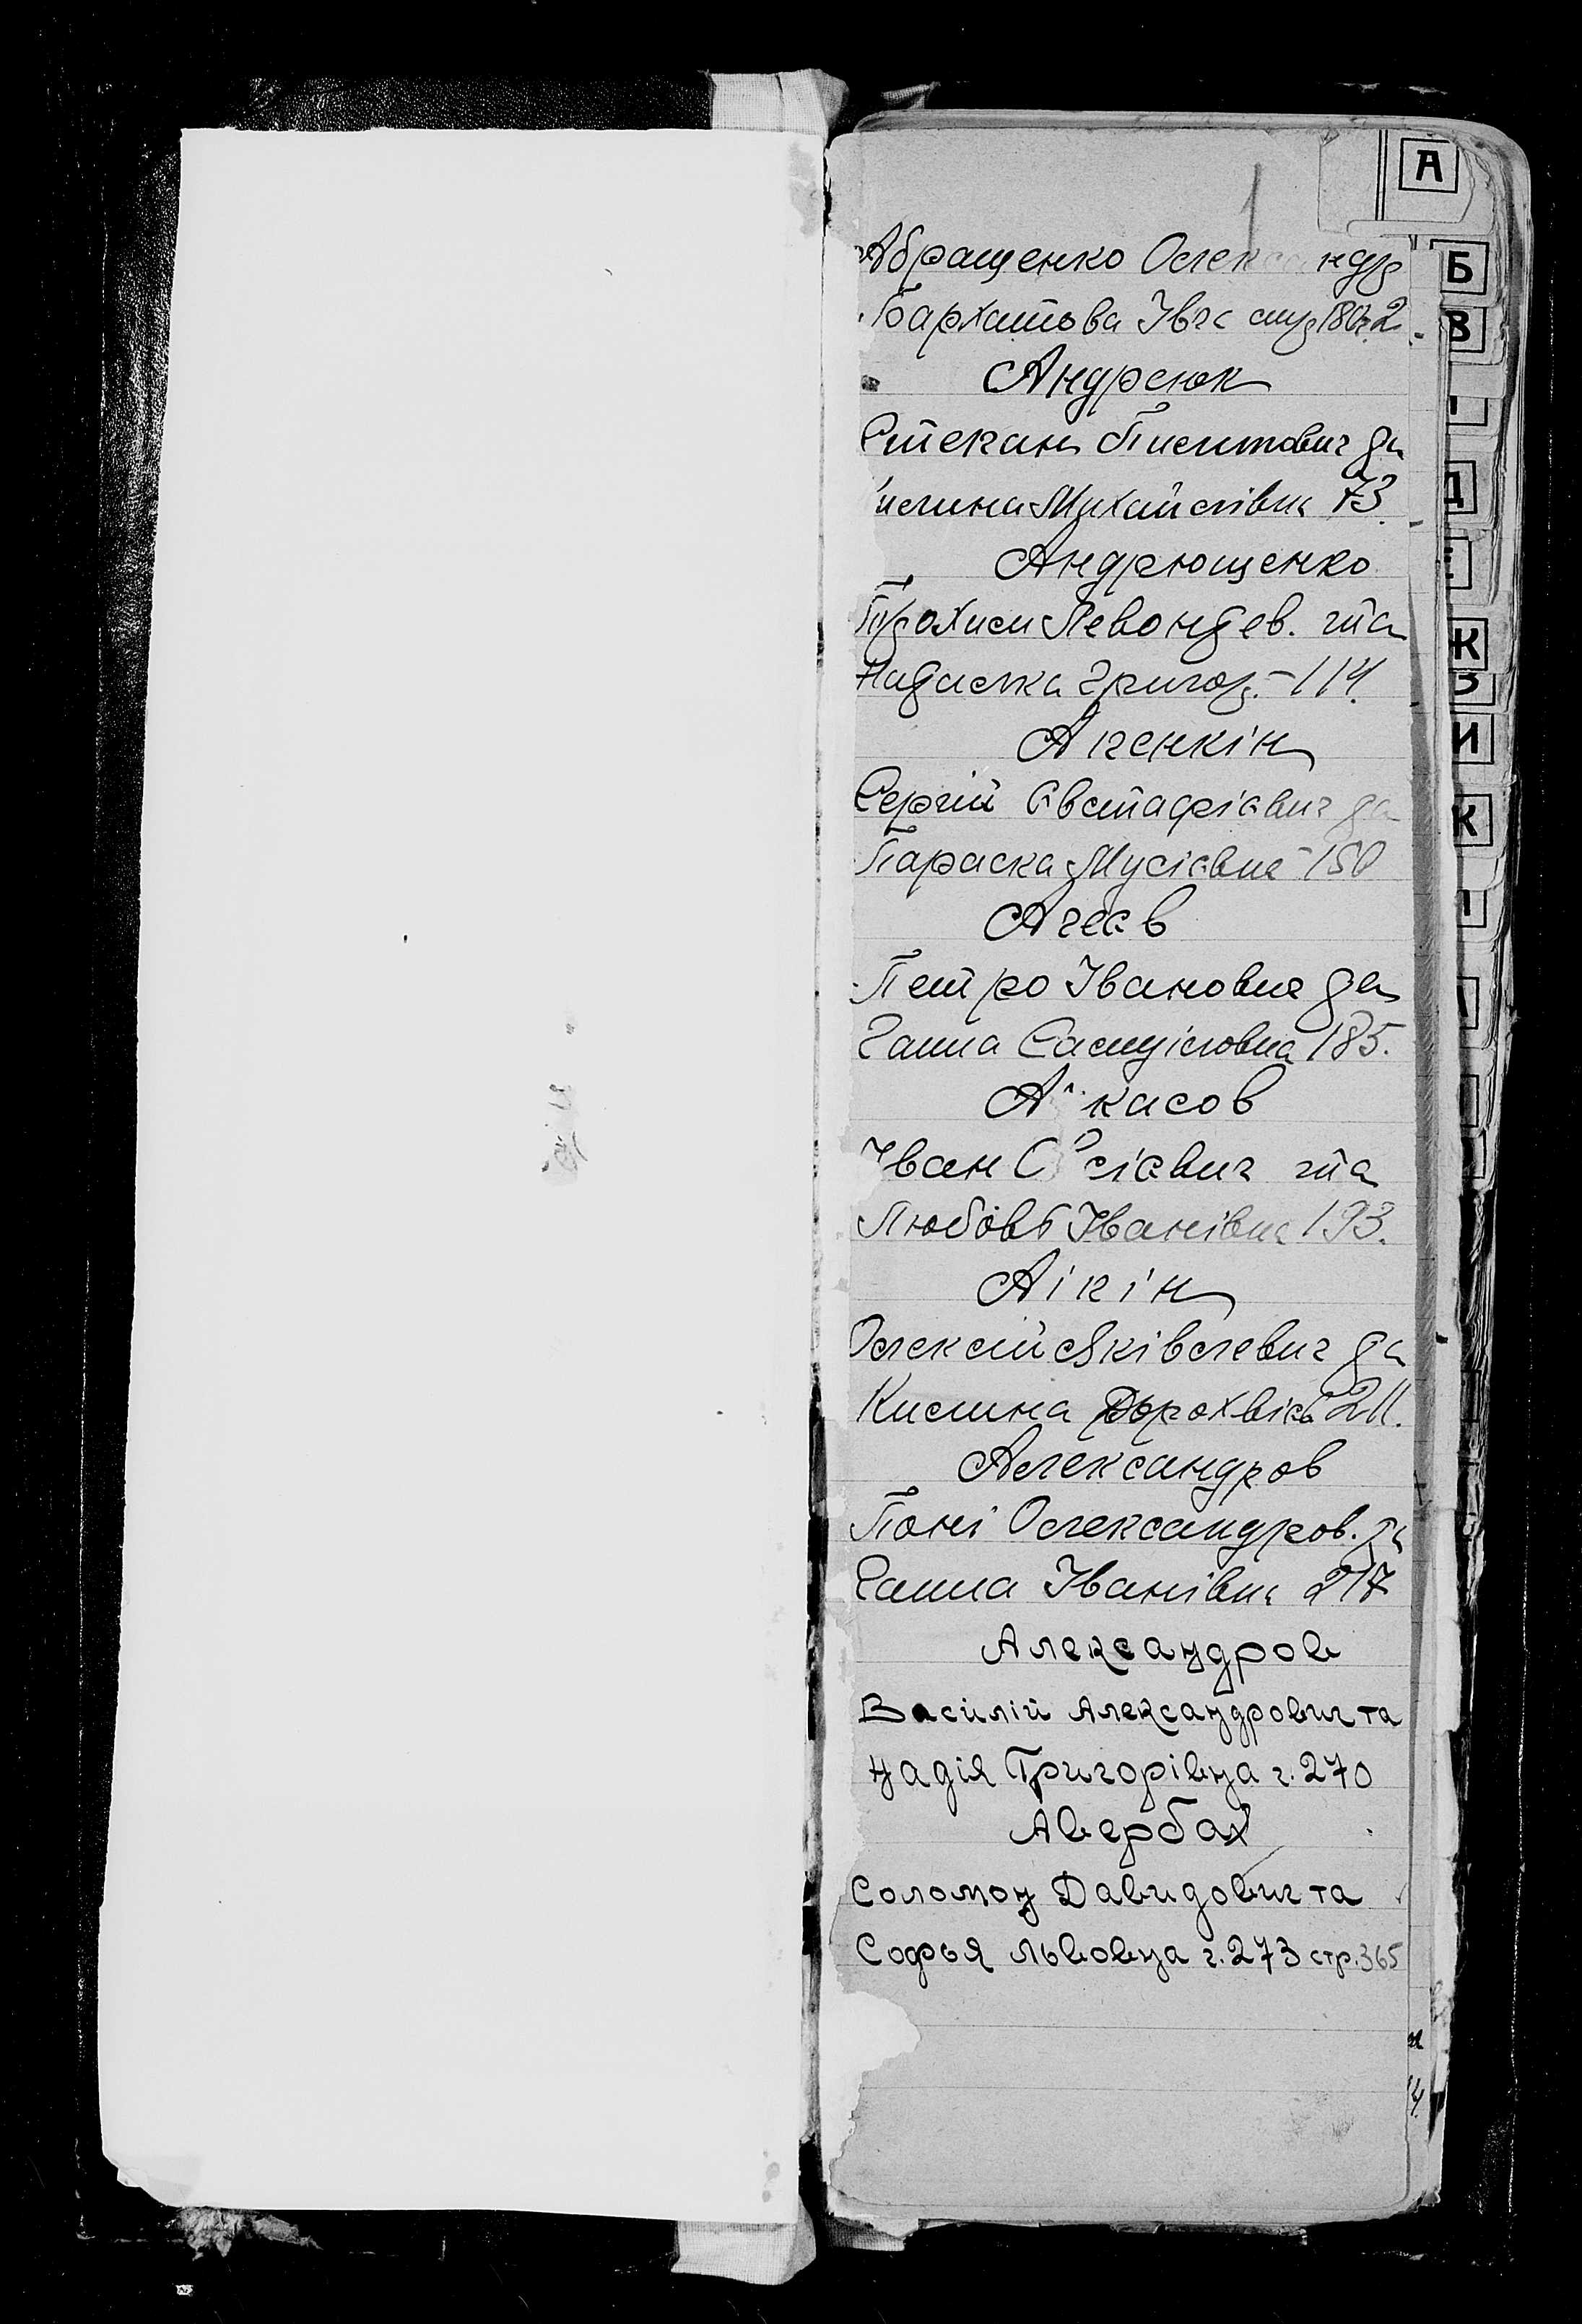 1
А
Абращенко Олександр
Бархатова Івгє 180 г. 2
Андреюк
Степан Пилипович да
Михайлівна 73
Андрющенко
Прохим Левондев. та
Надалка Григор. - 114.
Агенкін
Сергій Євстафієвич да
Параска Мусієвна - 150
Агеєв
Петро Іванович да
Ганна Самуіловна 185.
касов
Іван та
Любовь Іванівна 193.
Аікін
Олексій Яківлевич да
Килина 211.
Александров
Олександров. да
Ганна Іванівна 217
Александров
Василій Александрович та
Надія Григорівна г. 270
Авербах
Соломон Давидович та
Софья Львовна г. 273 стр. 365
Б
В
Д
Е
К
З
И
К